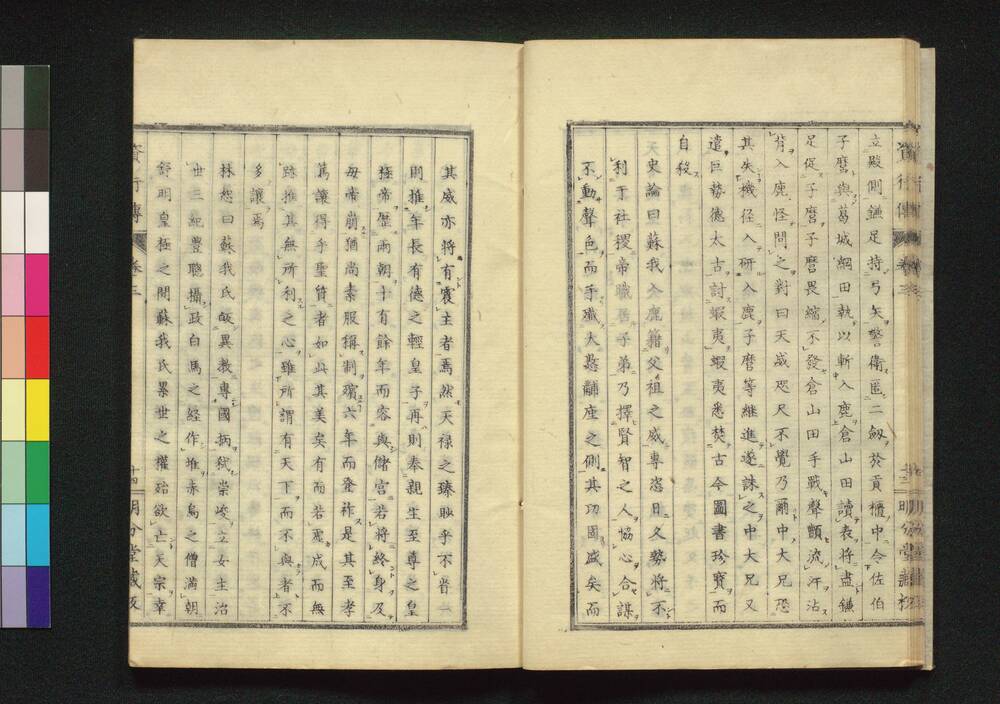 立殿側鎌足持弓矢警衛匿二劔於貢櫃中令佐伯
子麿與葛城網田執以斬入鹿倉山田讀表將盡鎌
足促子麿子麿畏縮不發倉山田手戰聲顫流汗沾
背入鹿怪問之對曰天威咫尺不覺乃爾中大兄恐
其失機径入斫入鹿子麿等継進遂誅之中大兄又
遣巨勢德太古討蝦夷蝦夷悉焚古今圖書珍寳而
自殺
天史論曰蘇我入鹿籍父祖之威專恣日久勢將不
利于社稷帝職居子弟乃擇賢智之人協心合謀
不動聲色而手殱大憝黼座之側其功固盛矣而
其威亦将有震主者焉然天禄之臻耿乎不肯一
則推年長有德之輕皇子再則奉親生至尊之皇
極帝歴兩朝十有餘年而容與儲宮若將終身及
母帝崩猶尚素服稱制殯六年而登祚是其至孝
篤讓得乎聖質者如此其美矣有而若虚成而無
跡推其無所利之心雖所謂有天下而不與者不
多讓焉
林恕曰蘇我氏皈異教專國柄弑崇峻立女主治
世三紀豊聰攝政白馬之経作推赤烏之僧満朝
舒明皇極之間蘇我氏累世之權殆欲亡天宗幸
資行傳
卷三
十四
明分堂藏板